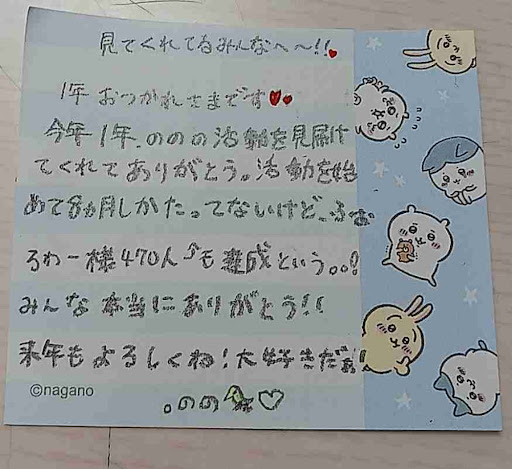 見てくれてるみんなへ〜!!
1年おつかれさまです
今年1年、ののの活動を見届け
てくれてありがとう。活動を始
めて8ヵ月しかたってないけど、ふぉ
ろわー様470人も達成という。。!
みんな本当にありがとう!!
来年もよろしくね!大好きだぁ!!
©nagano
。のの